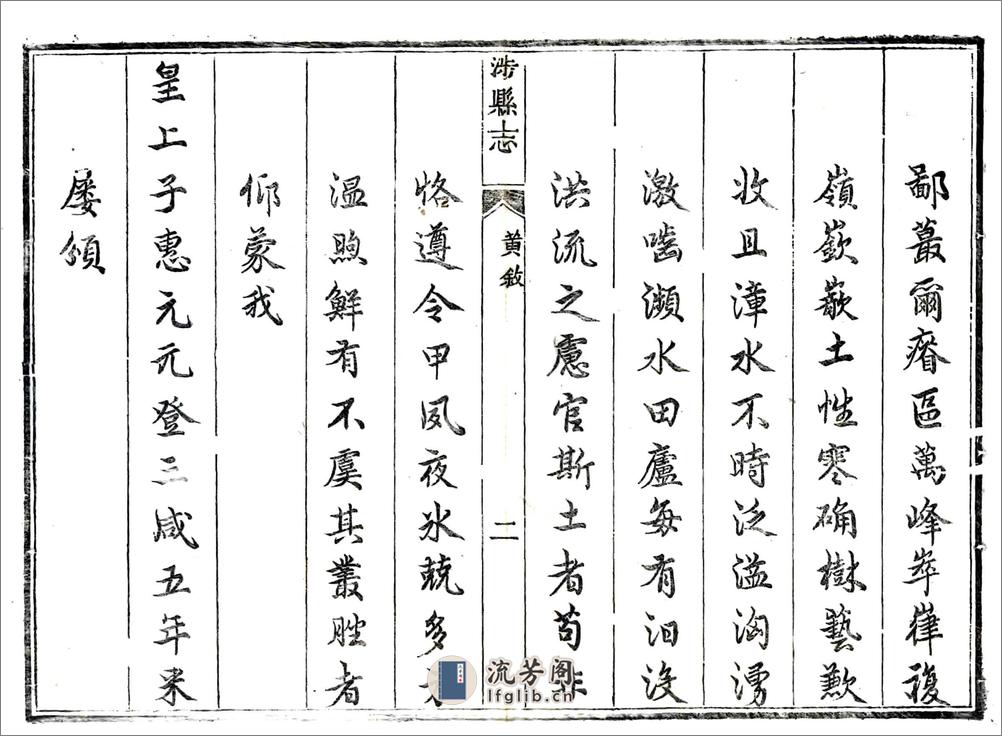 鄙蕞爾瘠區萬峰崒嵂複
嶺嶔嶔土性寒确樹藝歉
收且漳水不時泛溢洶湧
激嚙瀕水田廬每有汩没
洪流之慮官斯土者苟非
涉縣志
黄敘
二
恪遵令甲夙夜冰兢多方
温煦鮮有不虞其叢脞者
仰蒙我
皇上子惠元元登三咸五年来
屡頒
流芳阁
lfglib.com